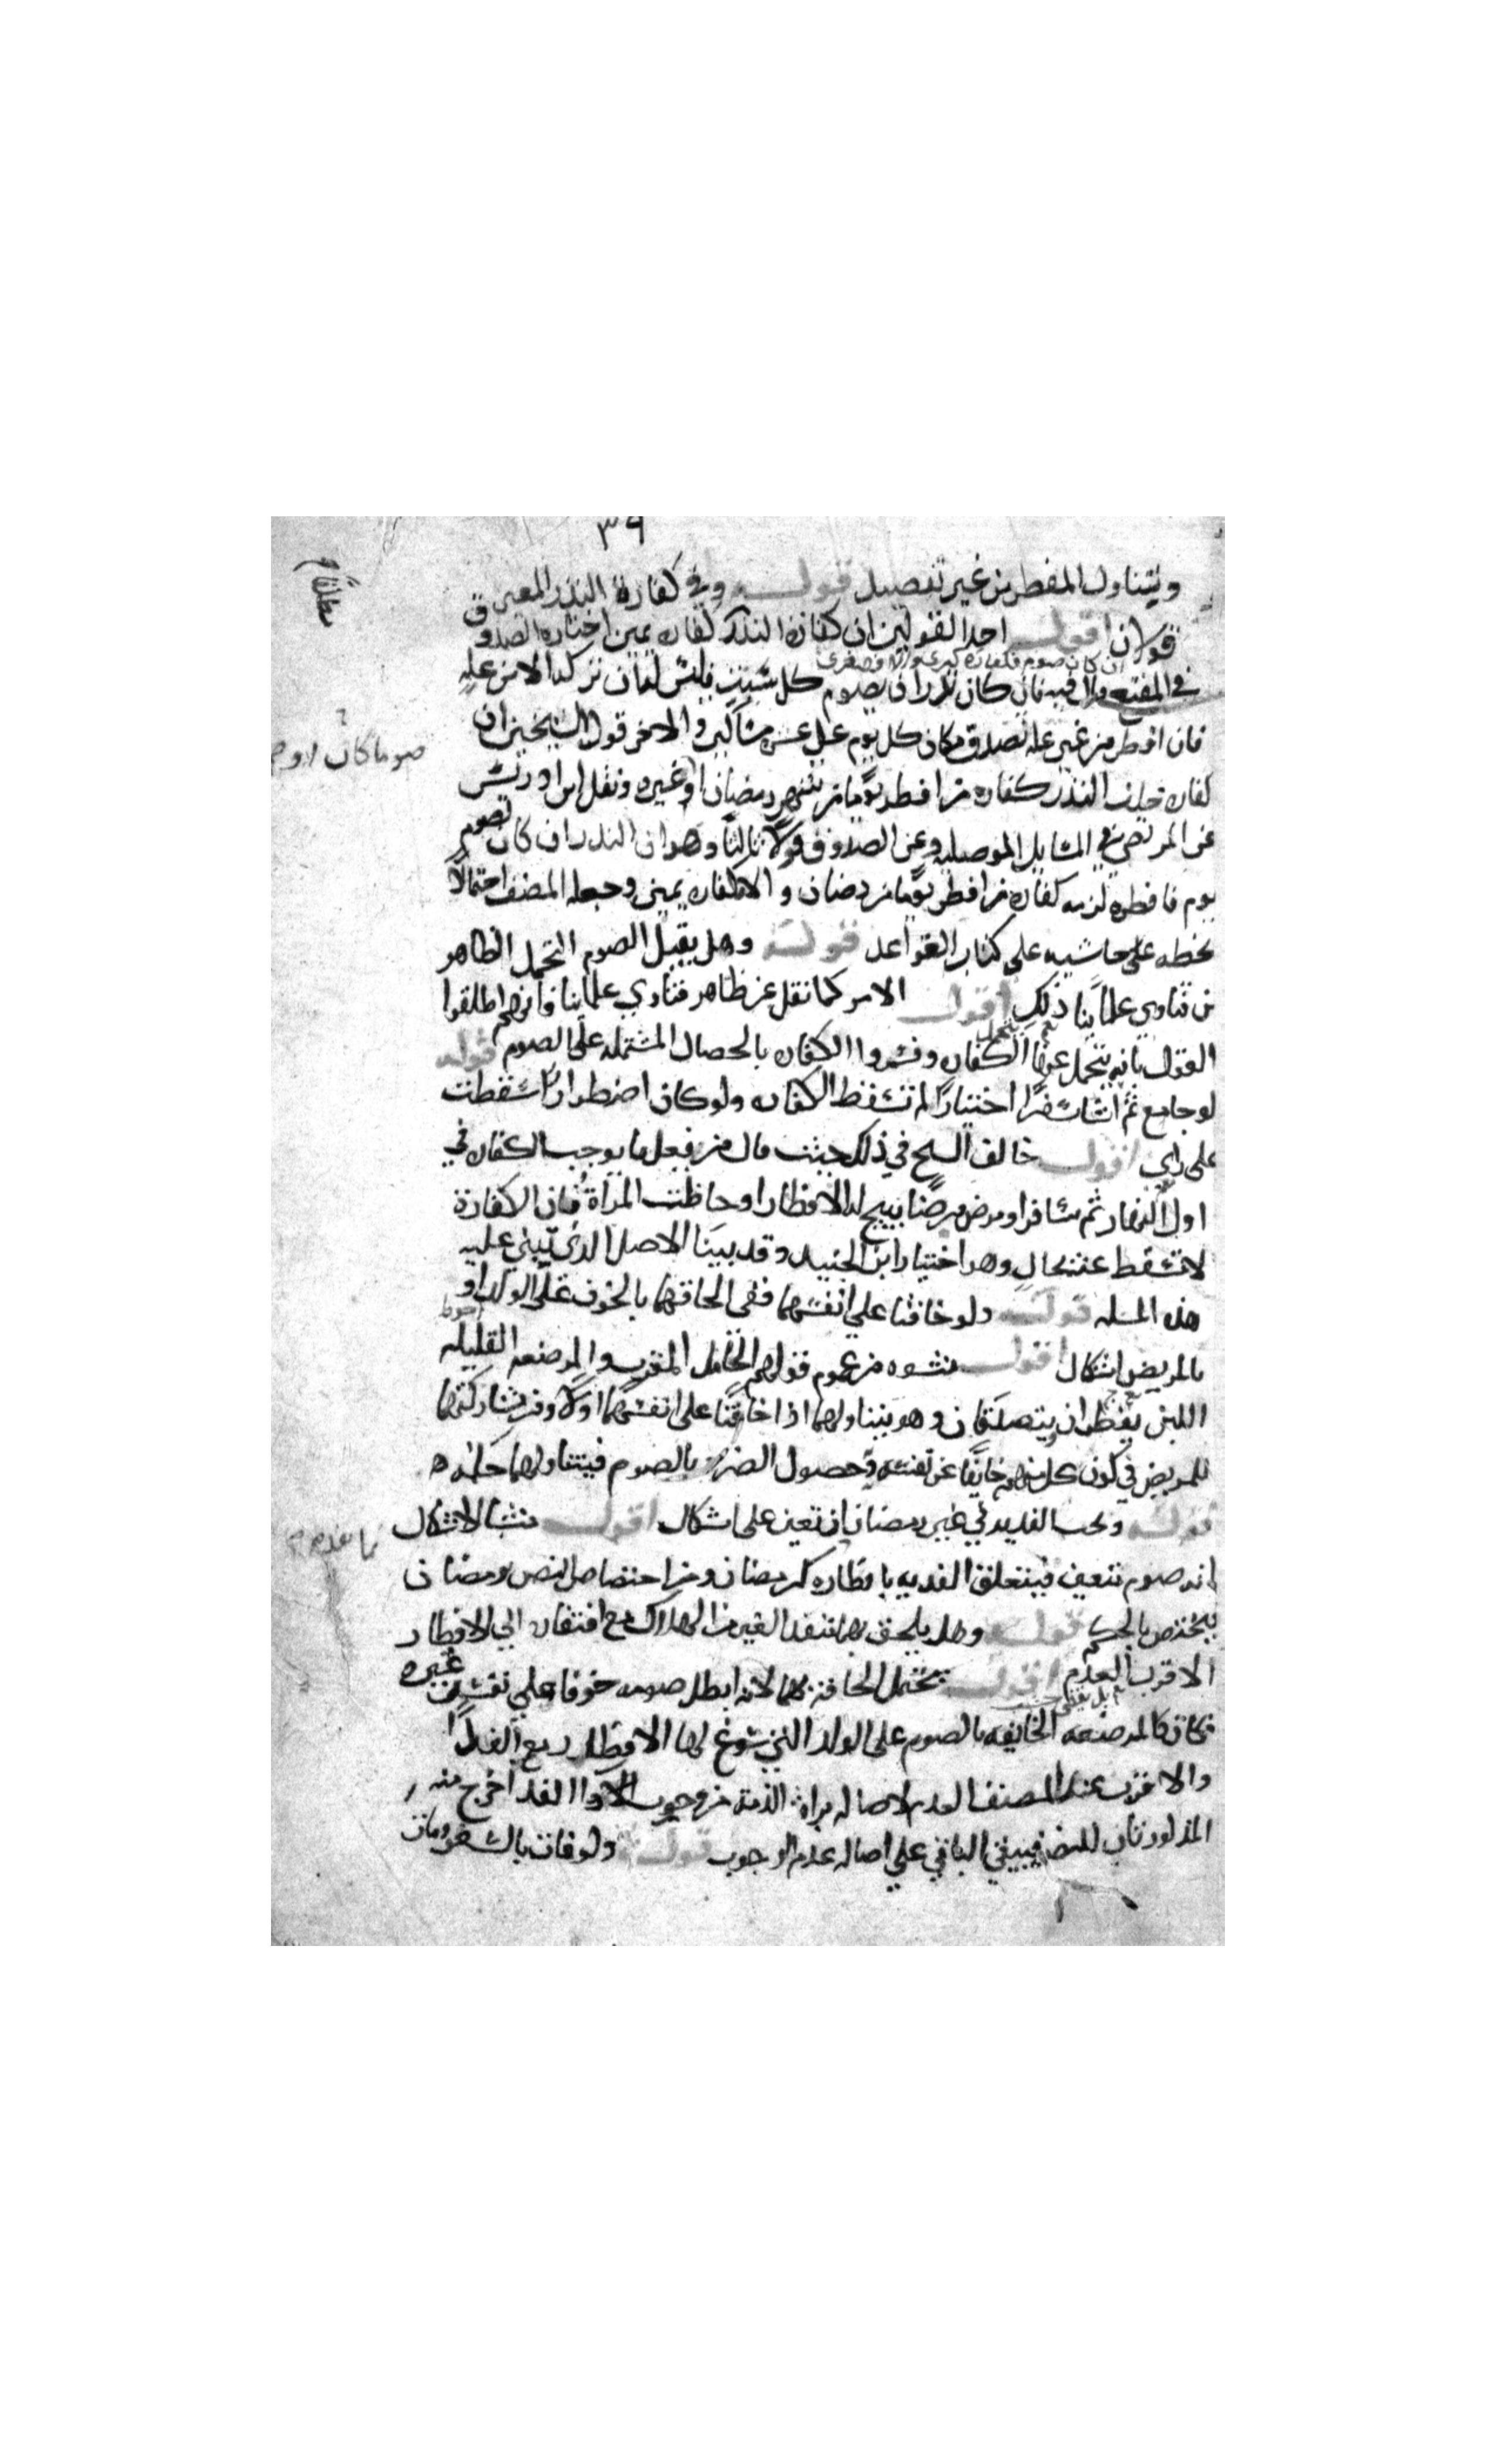 ٣٩
ويتناول المفطر من غير تفصيل قوله وفي كفارة النذر المعين
قولان اقول احد القولين ان كفارة النذر كفارة يمين اختاره الصدوق
في المقنع فان كان نذر ان يصوم كل سبت فليس له ان يتركه الا من علة
فان افطر من غير علة تصدق مكان كل يوم على عشرة مساكين والاخر قول الشيخين ان
كفارة خلف النذر كفارة من افطر يوما من شهر رمضان او غيره ونقل ابن ادريس
عن المرتضى في المسايل الموصلية وعن الصدوق قولا ثالثا وهو ان النذر ان كان لصوم
يوم فافطره لزمه كفارة من افطر يوما من رمضان والا كفارة يمين وجعله المصنف احتمالا
بخطه على حاشيه على كتاب القواعد قوله وهل يقبل الصوم التحمل الظاهر
من فتاوى علماينا ذلك اقول الامر كما نقل عن ظاهر فتاوي علماينا فانهم اطلقوا
القول بانه يتحمل عنها الكفارة وفسروا الكفارة بالخصال المشتملة على الصوم قوله
لو جامع ثم انشا سفرا اختيارا لم تسقط الكفارة ولو كان اضطرارا سقطت
على راي اقول خالف الشيخ في ذلك حيث قال من فعل ما يوجب الكفارة في
اول النهار ثم سافر او مرض مرضا يبيح له الافطار او حاضت المراة فان الكفارة
لا تسقط عنه بحال وهو اختيار ابن الجنيد وقد بينا الاصل الذي تبنى عليه
هذه المسلة قوله ولو خافتا على انفسهما ففي الحاقهما بالخوف على الولد او
بالمريض اشكال اقول منشوه من عموم قولهم الحامل المقرب والمرضعة القليلة
اللبن يفطران يتصدقان وهو يتناولهما اذا خافتا على انفسهما اولا ومن مشاركتهما
للمريض في كون كل منهم خايفا عن نفسه وحصول الضرر بالصوم فيتناولهما حكمه
قوله وتجب الفدية في غير رمضان ان تعين على اشكال اقول منشا الاشكال
انه صوم تعين فيتعلق الفدية بافطاره كرمضان ومن اختصاص النص برمضان
فيختص بالحكم قوله وهل يلحق بهما منقذ الغير من الهلاك مع افتقاره الى الافطار
الاقرب العدم اقول يحتمل الحاقه بهما لانه ابطل صومه خوفا على نفس غيره
فكان كالمرضعة الخايفة بالصوم على الولد التي سوغ لها الافطار مع الفدا
والاقرب عند المصنف العدم لاصالة براة الذمة من وجوب الفدا خرج منه
المذكورتان للنص فيبقى الباقي على اصالة عدم الوجوب قوله ولو فات بالسفر ومات